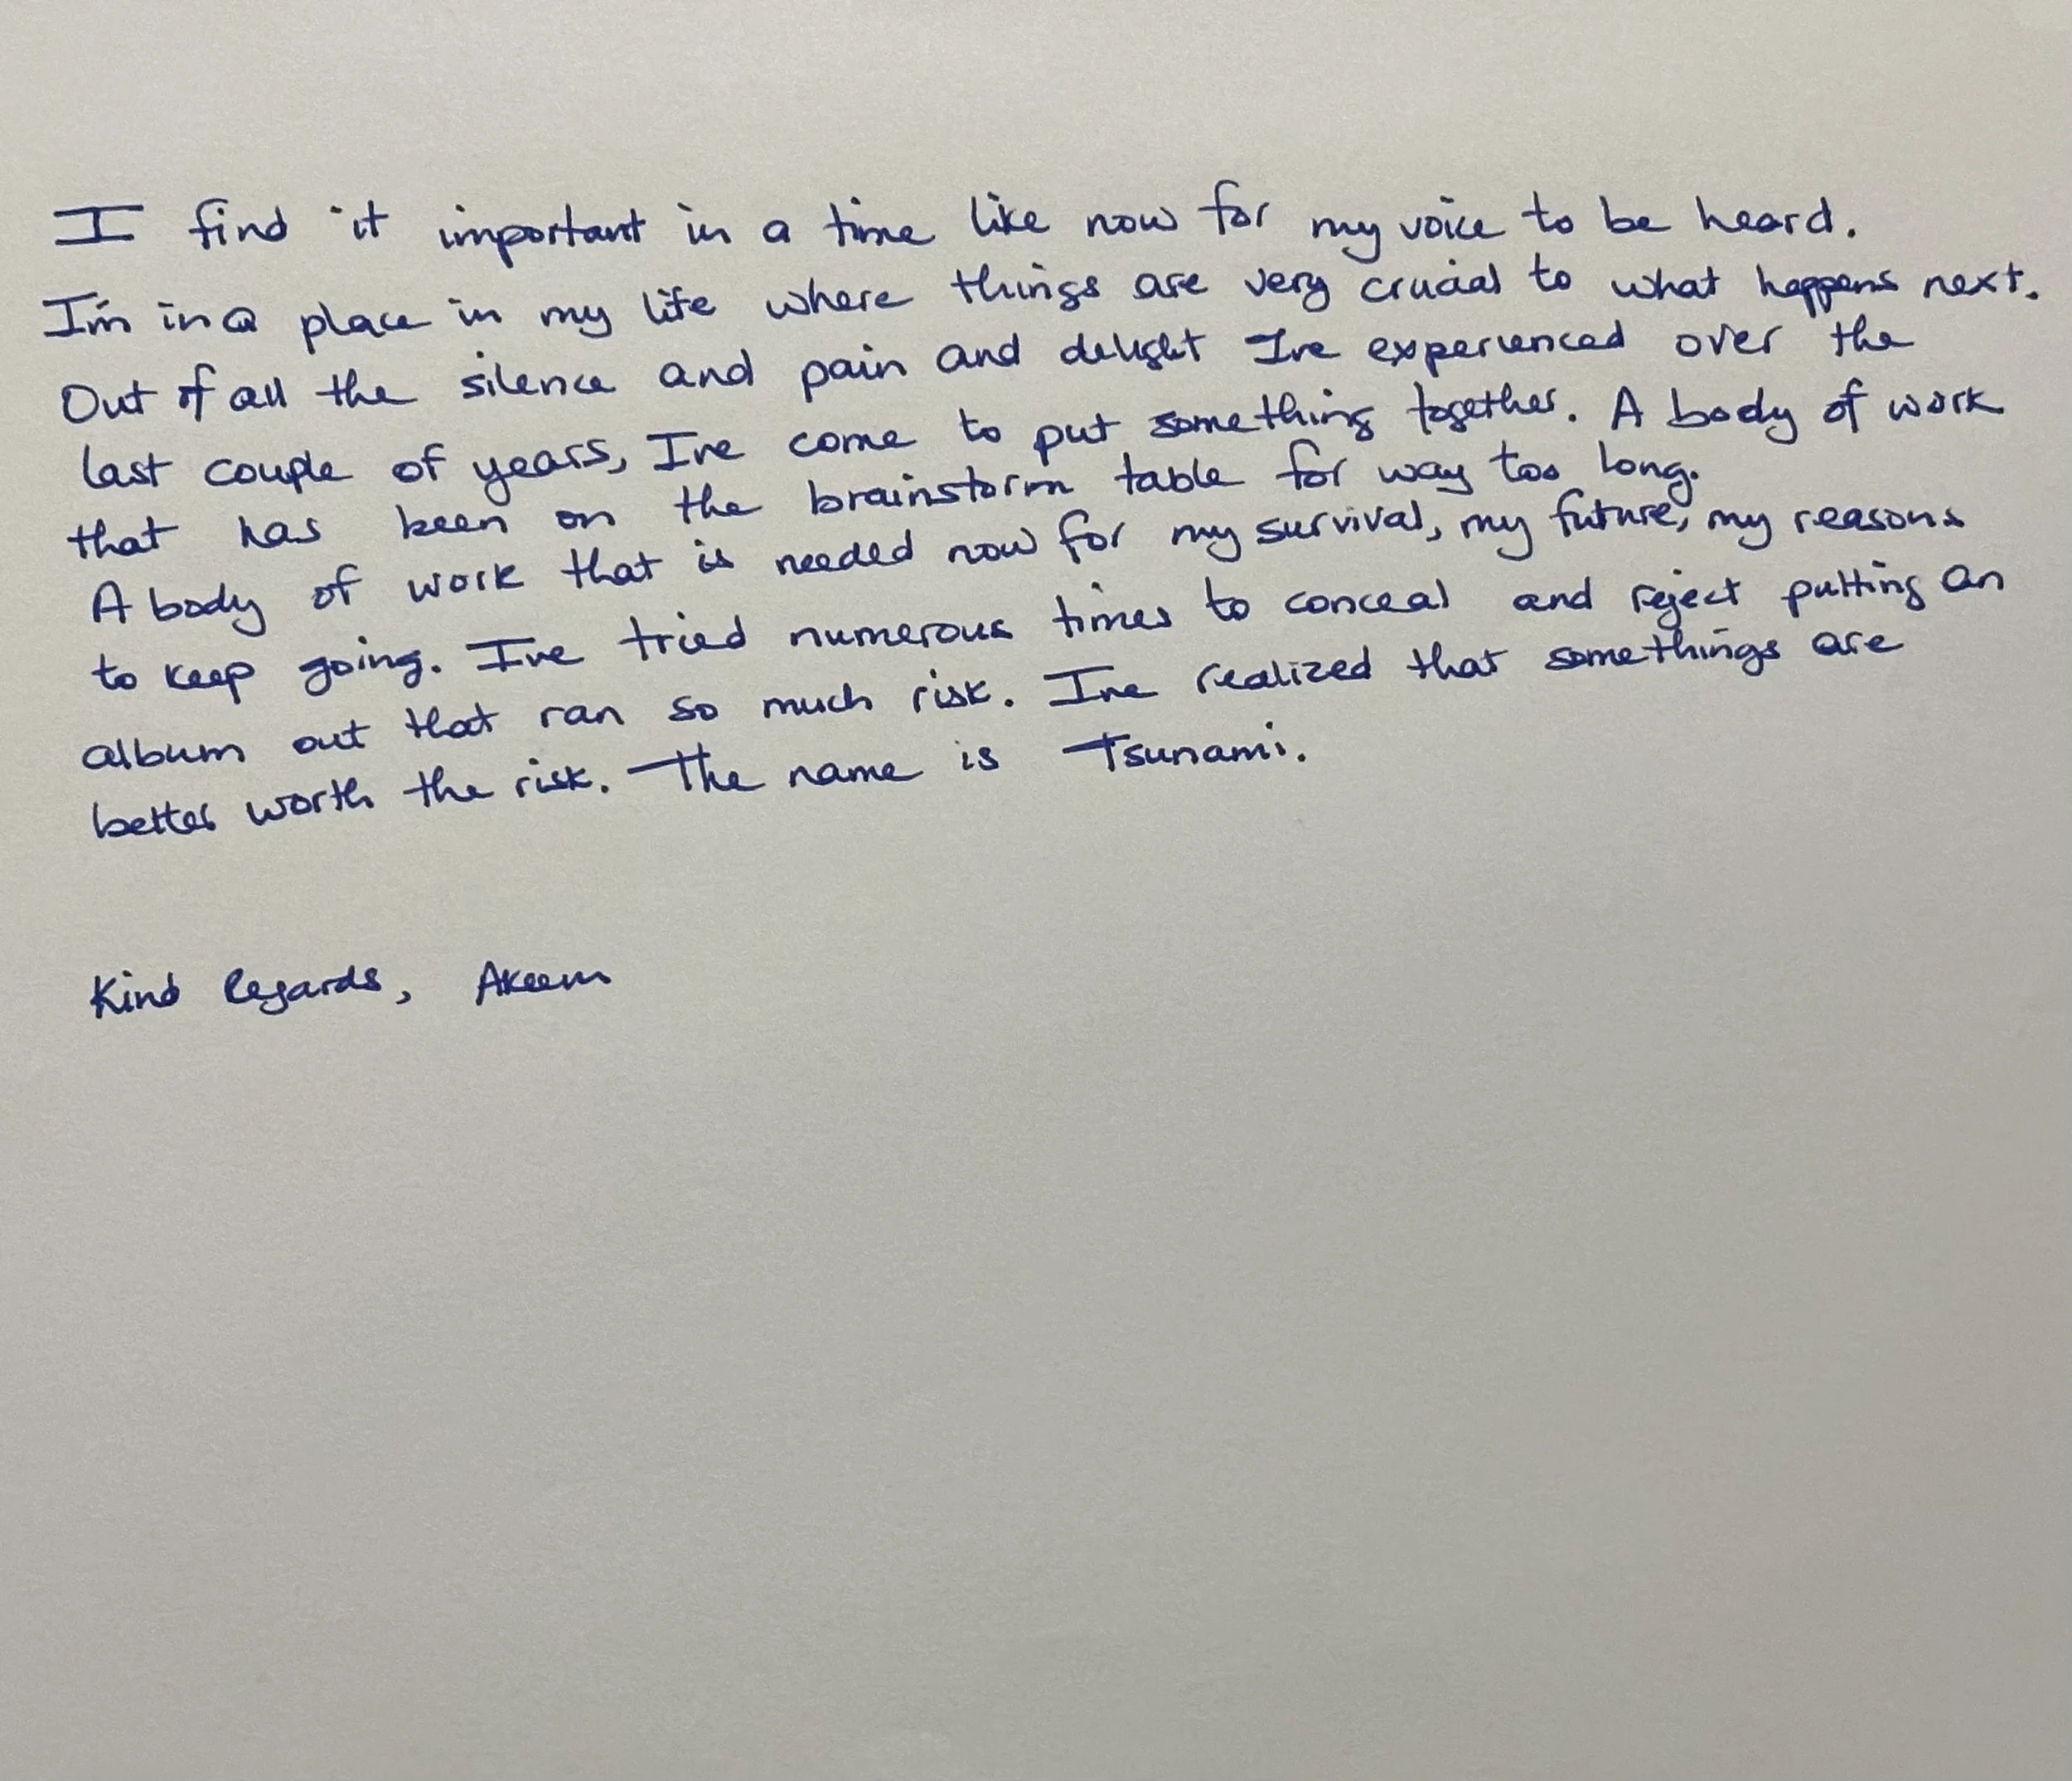 I find it important in a time like now for my voice to be heard.
I'm in a place in my life where things are very crucial to what happens next.
Out of all the silence and pain and delight Ive experienced over the
last couple of years, Ive come to put something together. A body of work
that has been on the brainstorm table for way too long.
A body of work that is needed now for my survival, my future, my reasons
to keep going. Ive tried numerous times to conceal and reject putting an
album out that ran so much risk. Ive realized that somethings are
better worth the risk. The name is Tsunami.
Kind Regards, Akeem